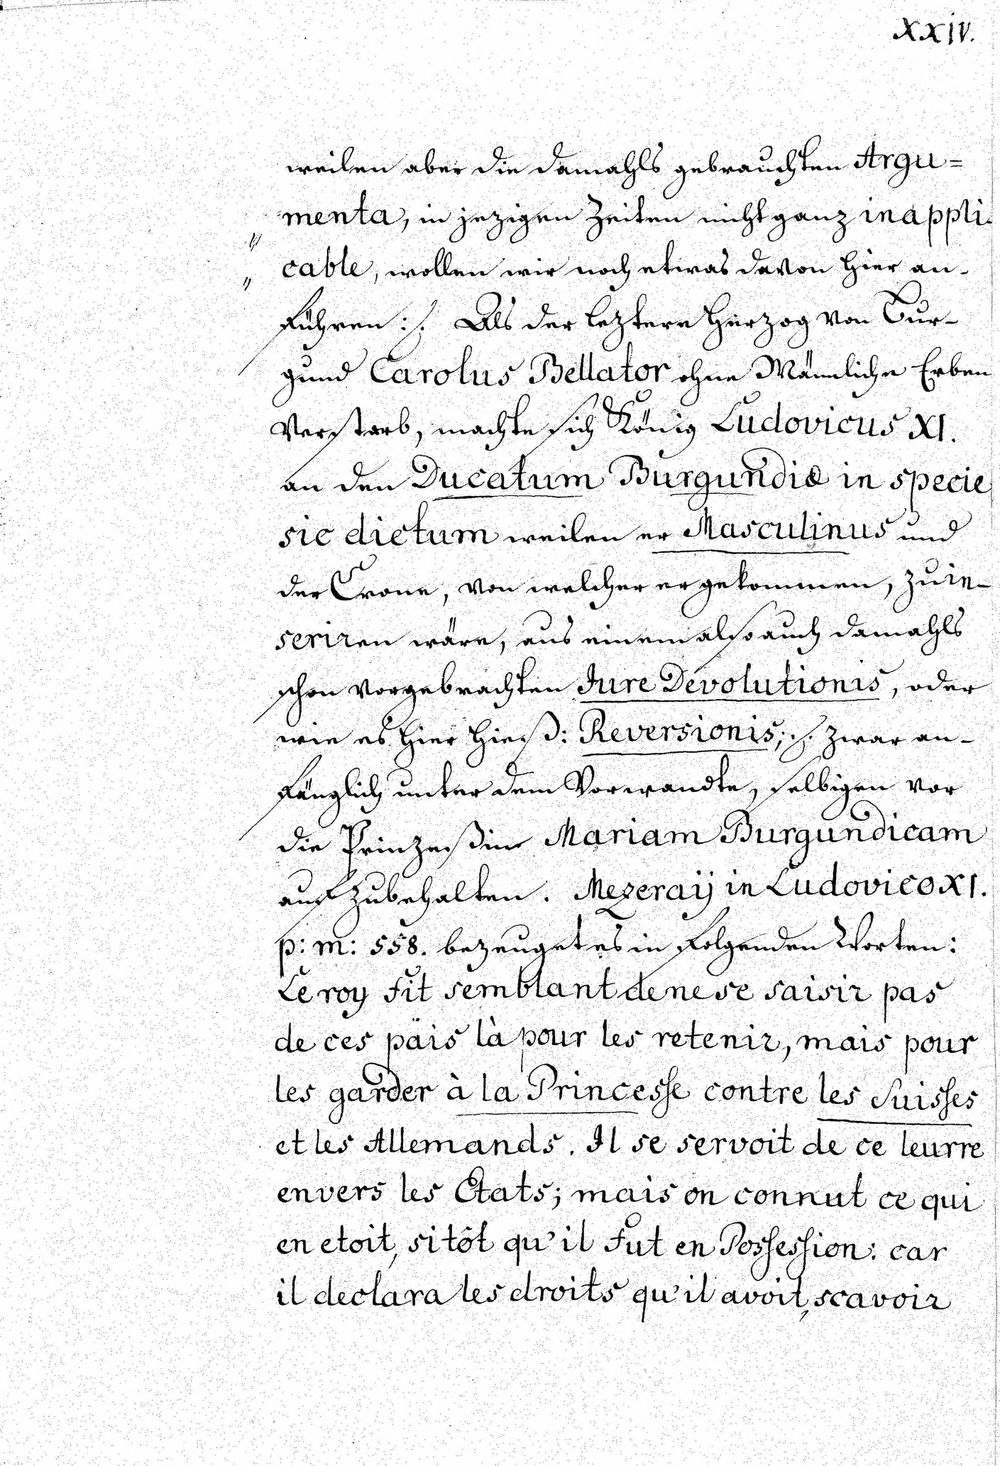 XXIV.
weilen aber die damahls gebrauchten Argu=
menta, in jezigen Zeiten nicht ganz inappli-
cable, wollen wir noch etwas davon hier an-
führen :/. Als der leztere Herzog von Bur-
gund Carolus Bellator ohne Männliche Erben
Verstarb, machte sich König Ludovicus XI.
an den Ducatum Burgundiæ in specie
sic dictum weilen er Masculinus und
der Crone, von welcher er gekommen, zu in-
seriren wäre, aus einem also auch damahls
schon vorgebrachten Jure Devolutionis, oder
wie es hier hieß: Reversionis; ./. zwar an-
fänglich unter dem Vorwandte, selbigen vor
die Prinzeßin Mariam Burgundicam
auf zubehalten. Mezeraÿ in Ludovico XI.
p: m: 558. bezeuget es in folgenden Worten:
Le roy fit semblant de ne se saisir pas
de ces päis là pour les retenir, mais pour
les garder à la Princesse contre les Suisses
et les Allemands. Il se servoit de ce leurre
envers les Etats; mais on connut ce qui
en etoit, sitôt qu'il fut en Possession: car
il declara les droits qu'il avoit, scavoir